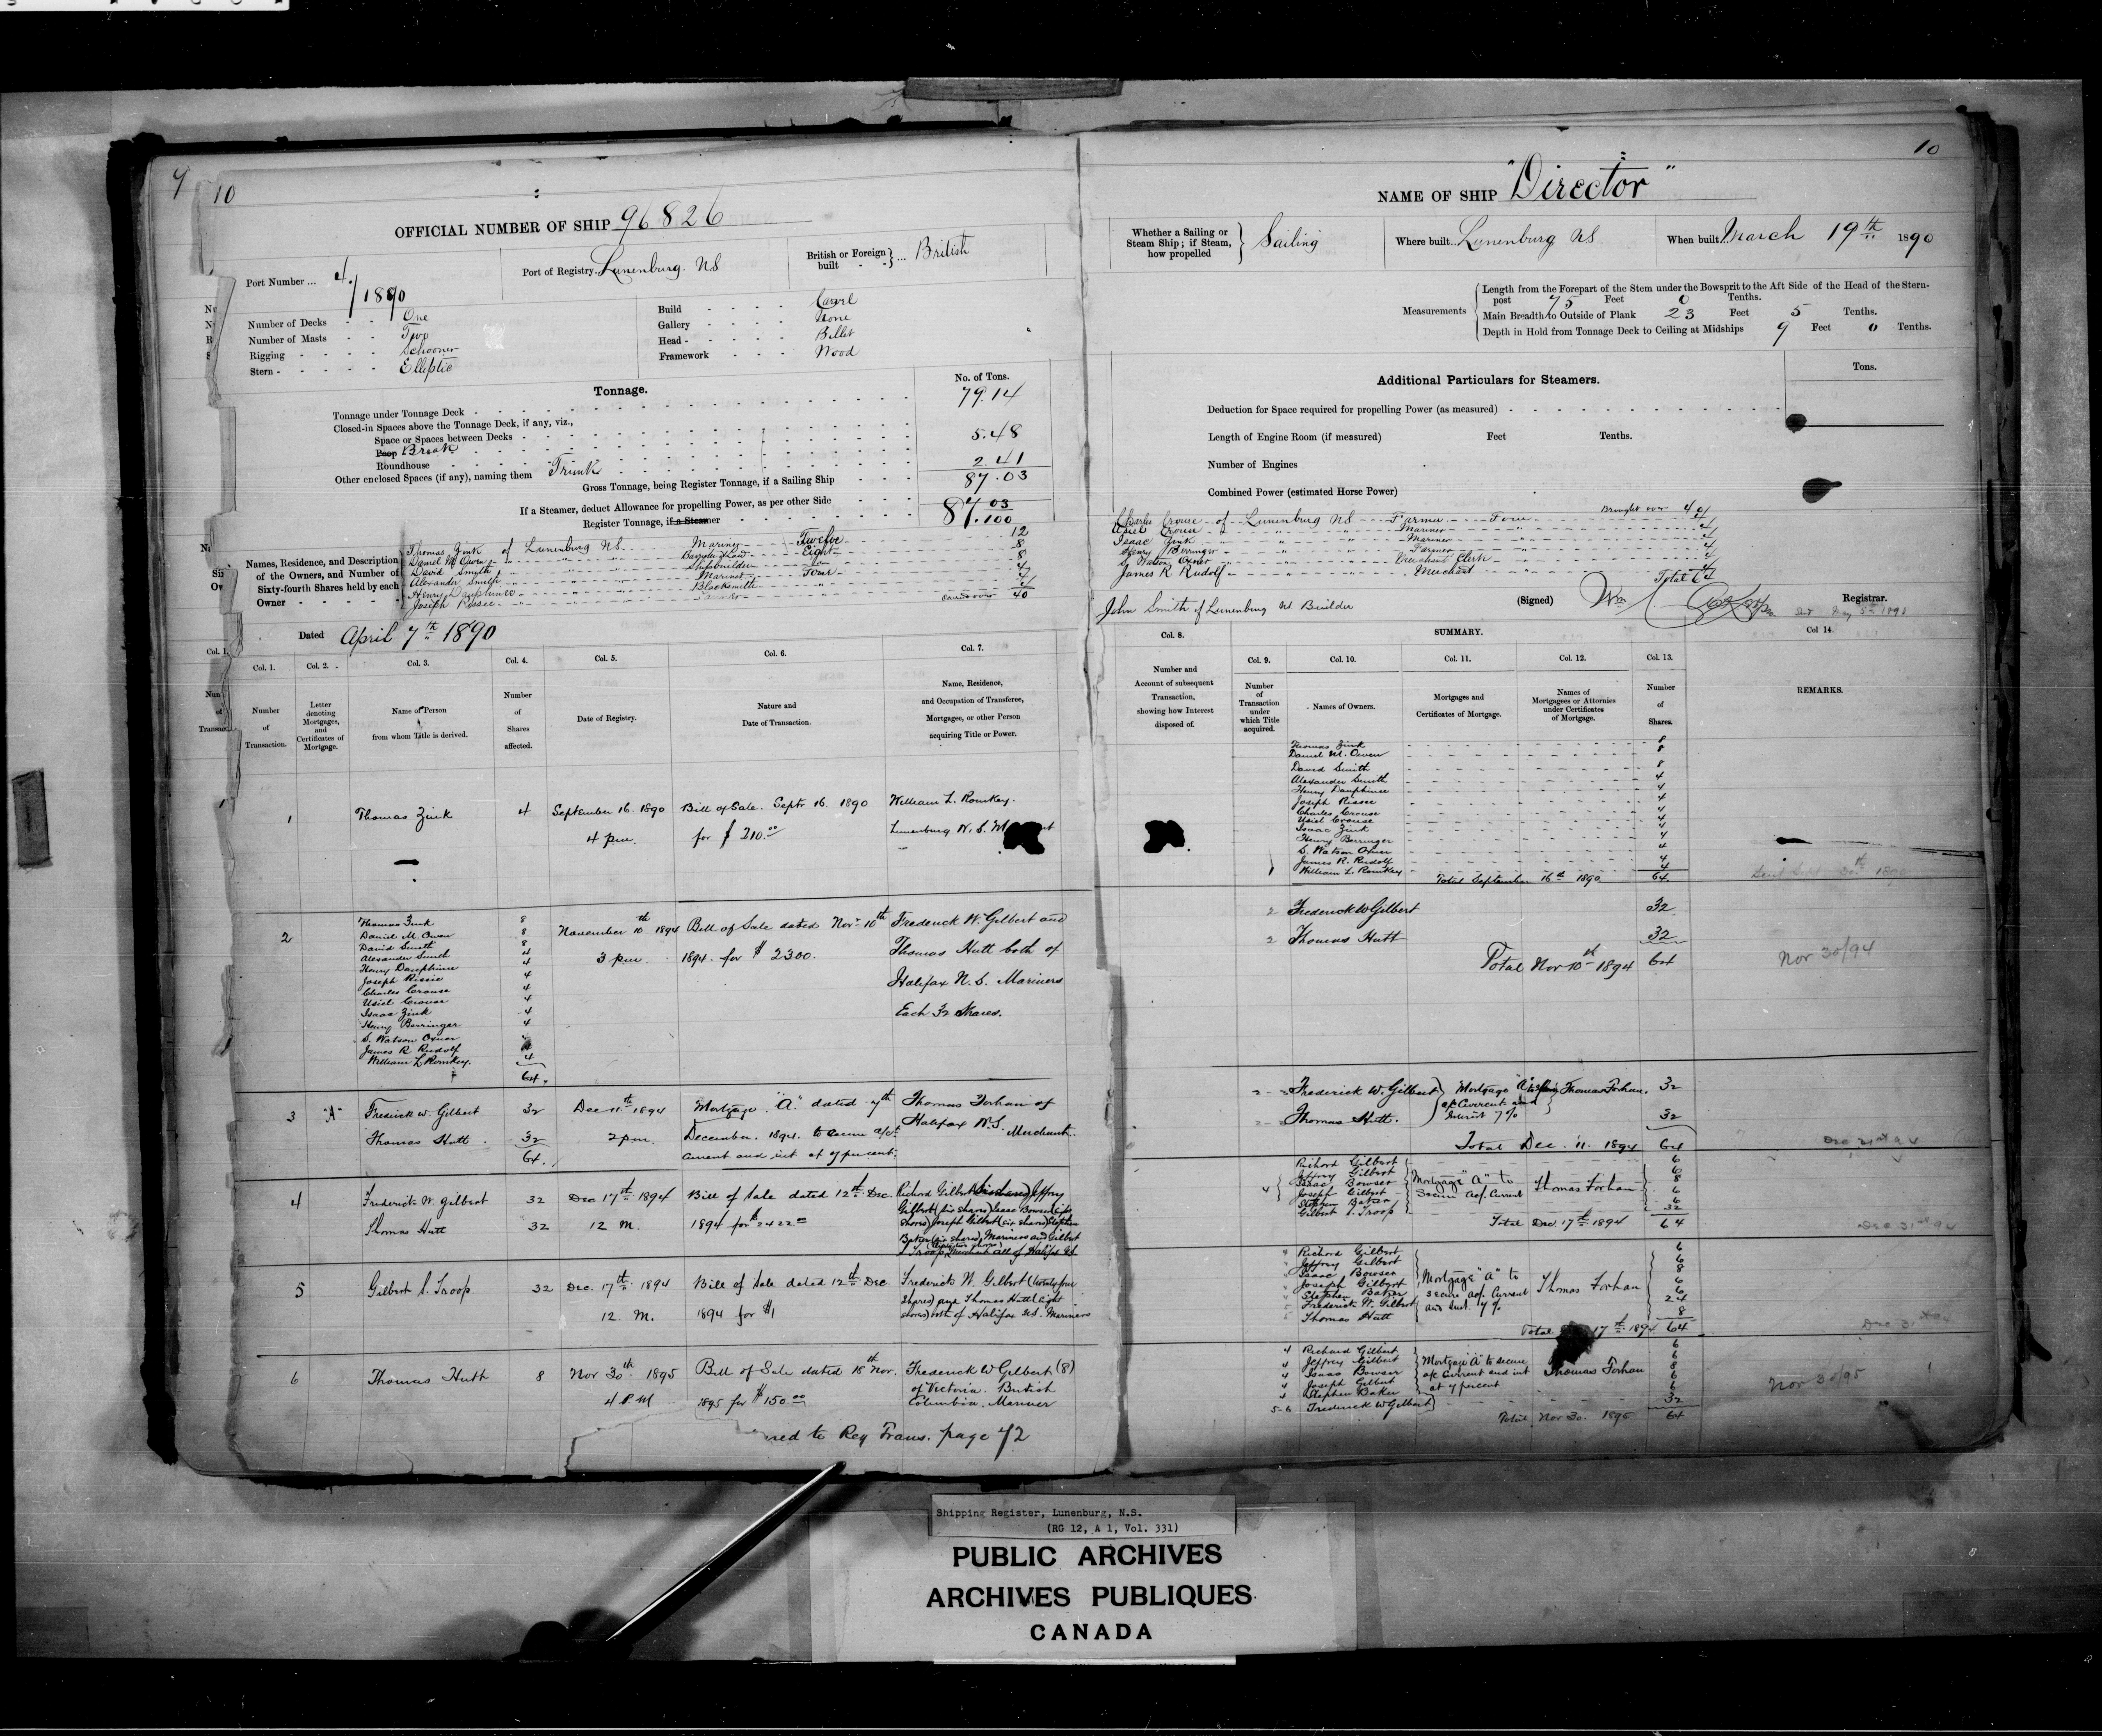 9
10
OFFICIAL NUMBER OF SHIP 96826
Port Number ... 4/1890
Port of Registry. Lunenburg. NS
British or Foreign built ... British
Number of Decks One
Number of Masts Two
Rigging Schooner
Stern Elliptic
Build Carvel
Gallery None
Head Billet
Framework Wood
Tonnage.
No. of Tons.
Tonnage under Tonnage Deck 79.14
Closed-in Spaces above the Tonnage Deck, if any, viz.,
Space or Spaces between Decks
Poop Break 5.48
Roundhouse
Other enclosed Spaces (if any), naming them Trunk 2.41
Gross Tonnage, being Register Tonnage, if a Sailing Ship 87.03
If a Steamer, deduct Allowance for propelling Power, as per other Side
Register Tonnage, if a Steamer 87.03/100
Names, Residence, and Description of the Owners, and Number of Sixty-fourth Shares held by each Owner
Thomas Zink of Lunenburg NS Mariner Twelve 12
Daniel M. Owen Barrister at Law Eight 8
David Smith Shipbuilder 8
Alexander Smith Mariner Four 4
Henry Dauphinee Blacksmith 4
Joseph Rissee 4
Carried over 40
Dated April 7th 1890
Col. 1.
Number of Transaction.
Col. 2.
Letter denoting Mortgages, and Certificates of Mortgage.
Col. 3.
Name of Person from whom Title is derived.
Col. 4.
Number of Shares affected.
Col. 5.
Date of Registry.
Col. 6.
Nature and Date of Transaction.
Col. 7.
Name, Residence, and Occupation of Transferee, Mortgagee, or other Person acquiring Title or Power.
1 Thomas Zink 4 September 16. 1890 Bill of Sale. Septr 16. 1890 William L. Romkey.
4 pm. for $ 210.00 Lunenburg N. S.
2
Thomas Zink 8
Daniel M. Owen 8
David Smith 8
Alexander Smith 4
Henry Dauphinee 4
Joseph Rissee 4
Charles Crouse 4
Usiel Crouse 4
Isaac Zink 4
Henry Berringer 4
S. Watson Oxner
James R Rudolf 4
William L Romkey. 4
64.
November 10th 1894 Bill of Sale dated Novr 10th Frederick W. Gilbert and
3 pm. 1894. for $ 2300. Thomas Hutt both of
Halifax N. S. Mariners
Each 32 Shares.
3 "A" Frederick W. Gilbert 32 Dec 11th 1894 Mortgage "A" dated 7th Thomas Forhan of
Thomas Hutt. 32 2 pm. December. 1894. to secure a/ct Halifax N.S. Merchant.
64. current and int at 7 percent.
4 Frederick W. Gilbert 32 Dec 17th 1894 Bill of Sale dated 12th Dec. Richard Gilbert (six shares) Jeffrey
Thomas Hutt 32 12 M. 1894 for $2422.00 Gilbert (six shares) Isaac Bowser (eight
shares) Joseph Gilbert (six shares) Stephen
Baker (six shares) Mariners and Gilbert
S Troop (thirty two shares) Merchant all of Halifax NS
5 Gilbert S. Troop 32 Dec. 17th 1894 Bill of Sale dated 12th Dec Frederick W. Gilbert (twenty four
12. M. 1894 for $1 shares) and Thomas Hutt (eight
shares) both of Halifax N.S. Mariners
6 Thomas Hutt 8 Nov 30th 1895 Bill of Sale dated 18th Nov. Frederick W Gilbert (8)
4 P.M 1895 for $150.00 of Victoria. British
Columbia. Mariner
red to Reg Trans. page 72
10
NAME OF SHIP "Director"
Whether a Sailing or Steam Ship; if Steam, how propelled Sailing
Where built... Lunenburg NS.
When built... March 19th 1890
Measurements
Length from the Forepart of the Stem under the Bowsprit to the Aft Side of the Head of the Stern-
post 75 Feet 0 Tenths.
Main Breadth to Outside of Plank 23 Feet 5 Tenths.
Depth in Hold from Tonnage Deck to Ceiling at Midships 9 Feet 0 Tenths.
Additional Particulars for Steamers.
Tons.
Deduction for Space required for propelling Power (as measured)
Length of Engine Room (if measured) Feet Tenths.
Number of Engines
Combined Power (estimated Horse Power)
Brought over 40
Charles Crouse of Lunenburg NS Farmer Four 4
Usiel Crouse of Mariner 4
Isaac Zink Mariner 4
Henry Berringer Farmer 4
S. Watson Oxner Merchant Clerk 4
James R Rudolf Merchant 4
Total 64
John Smith of Lunenburg NS Builder
(Signed) Wm
Registrar.
Col. 8.
Number and Account of subsequent Transaction, showing how Interest disposed of.
SUMMARY.
Col. 9.
Number of Transaction under which Title acquired.
Col. 10.
Names of Owners.
Col. 11.
Mortgages and Certificates of Mortgage.
Col. 12.
Names of Mortgagees or Attorneys under Certificates of Mortgage.
Col. 13.
Number of Shares.
Col 14.
REMARKS.
Thomas Zink 8
Daniel M. Owen 8
David Smith 8
Alexander Smith 4
Henry Dauphinee 4
Joseph Rissee 4
Charles Crouse 4
Usiel Crouse 4
Isaac Zink 4
Henry Berringer 4
S. Watson Oxner 4
James R. Rudolf 4
1 William L. Romkey 4
Total September 16th 1890 64.
2 Frederick W Gilbert 32
2 Thomas Hutt 32
Total Nov 10th 1894 64
Nov 30/94
2 Frederick W. Gilbert Mortgage "A" Thomas Forhan. 32
2 Thomas Hutt. a/c Current and Interest 7% 32
Total Dec. 11. 1894 64
Dec 31st 94
4
Richard Gilbert 6
Jeffrey Gilbert 6
Isaac Bowser 8
Joseph Gilbert 6
Stephen Baker 6
Gilbert S. Troop 32
Mortgage "A" to Secure acf. Current Thomas Forhan
Total Dec. 17th 1894 64
Dec 31st 94
4 Richard Gilbert 6
Jeffrey Gilbert 6
Isaac Bowser 8
Joseph Gilbert 6
Stephen Baker 6
Frederick W. Gilbert 24
5 Thomas Hutt 8
Mortgage "A" to secure acf. Current and Int. 7% Thomas Forhan
Total 17th 1894 64
Dec 31st 94
4 Richard Gilbert 6
4 Jeffrey Gilbert 6
4 Isaac Bowser 8
4 Joseph Gilbert 6
4 Stephen Baker 6
5-6 Frederick W Gilbert 32
Mortgage "A" to secure a/c Current and int at 7 percent Thomas Forhan
Total Nov 30. 1895 64
Nov 30/95
Shipping Register, Lunenburg, N.S.
(RG 12, A 1, Vol. 331)
PUBLIC ARCHIVES
ARCHIVES PUBLIQUES
CANADA